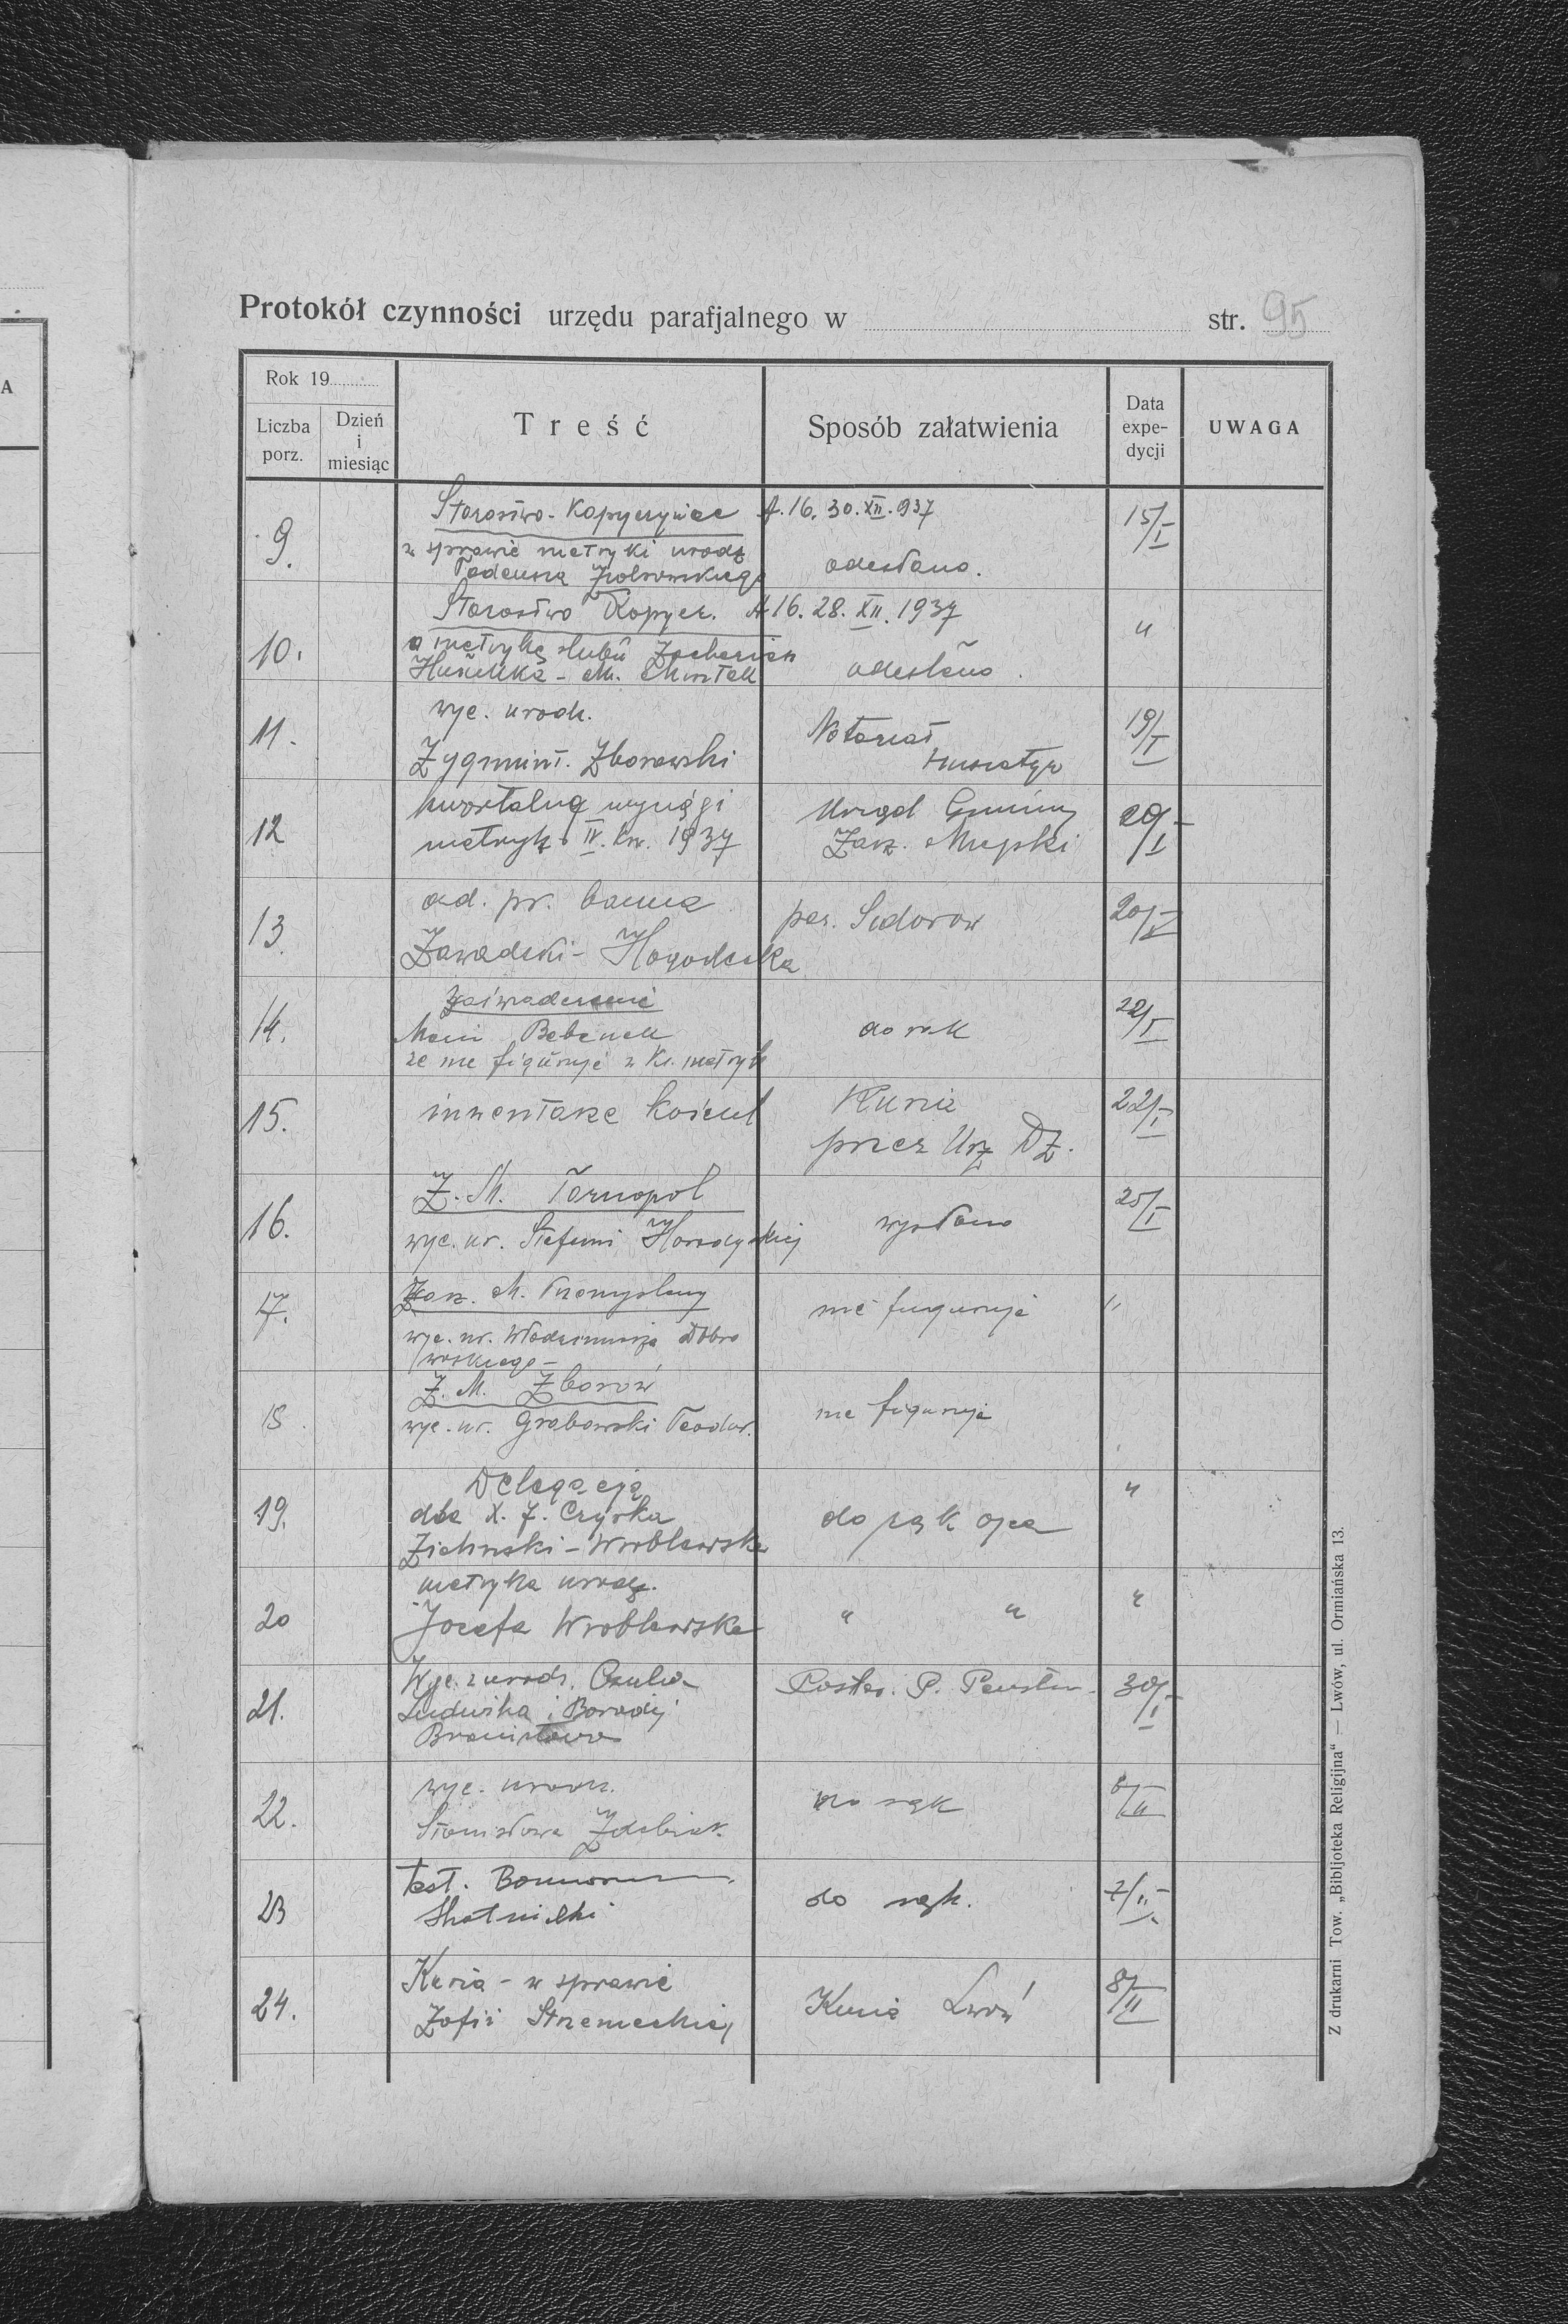 Protokół czynności urzędu parafjalnego w str. 95
Rok 19
Liczba porz.
Dzień i miesiąc
Treść
Sposób załatwienia
Data expedycji
UWAGA
A
9.
Starostwo - Kopyczyńce A. 16. 30. XII. 937
w sprawie metryki urodz
Tadeusza
odesłano.
15/I
10.
Starostwo Kopycz. A 16. 28. XII. 1937
o metrykę ślubu
odesłano.
"
11.
wyc. urodz.
Zygmunt. Zborowski
Notariat
Husiatyn
19/I
12
kwartalne wyciągi
metryk IV. kw. 1937
Urząd Gminny
Zarz. Miejski
20/I
13
ad. pr. banna
Zawadzki -
par. Sidorow
20/I
14.
Zaświadczenie
że nie figuruje w ks. metryk
do rąk
22/I
15.
inwentarz kościel
Kuria
przez Urz DZ.
22/I
16.
Z. M. Tarnopol
wyc. ur. Stefanii Horodyskiej
wysłano
25/I
17.
Zarz. M. Przemyślany
wyc. ur. Włodzimierza Dobro
/wolskiego -
nie figuruje
"
18
Z. M. Zborów
wyc. ur. Grabowski Teodor.
nie figuruje
19.
Delegacja
dla X. J. Czyrka
Zieliński - Wróblewska
do rąk ojca
"
20
metryka urodz.
Józefa Wroblewska
" "
"
21.
Wyc. z urodz.
Ludwika i
Bronisława
30/I
22.
wyc. urodz.
Stanisława
do rąk
6/II
23
test.
Skotnicki
do rąk.
7/II
24.
Kuria - w sprawie
Zofii Strzemeckiej
Kuria Lwów
8/II
Z drukarni Tow. „Bibljoteka Religijna" — Lwów, ul. Ormiańska 13.